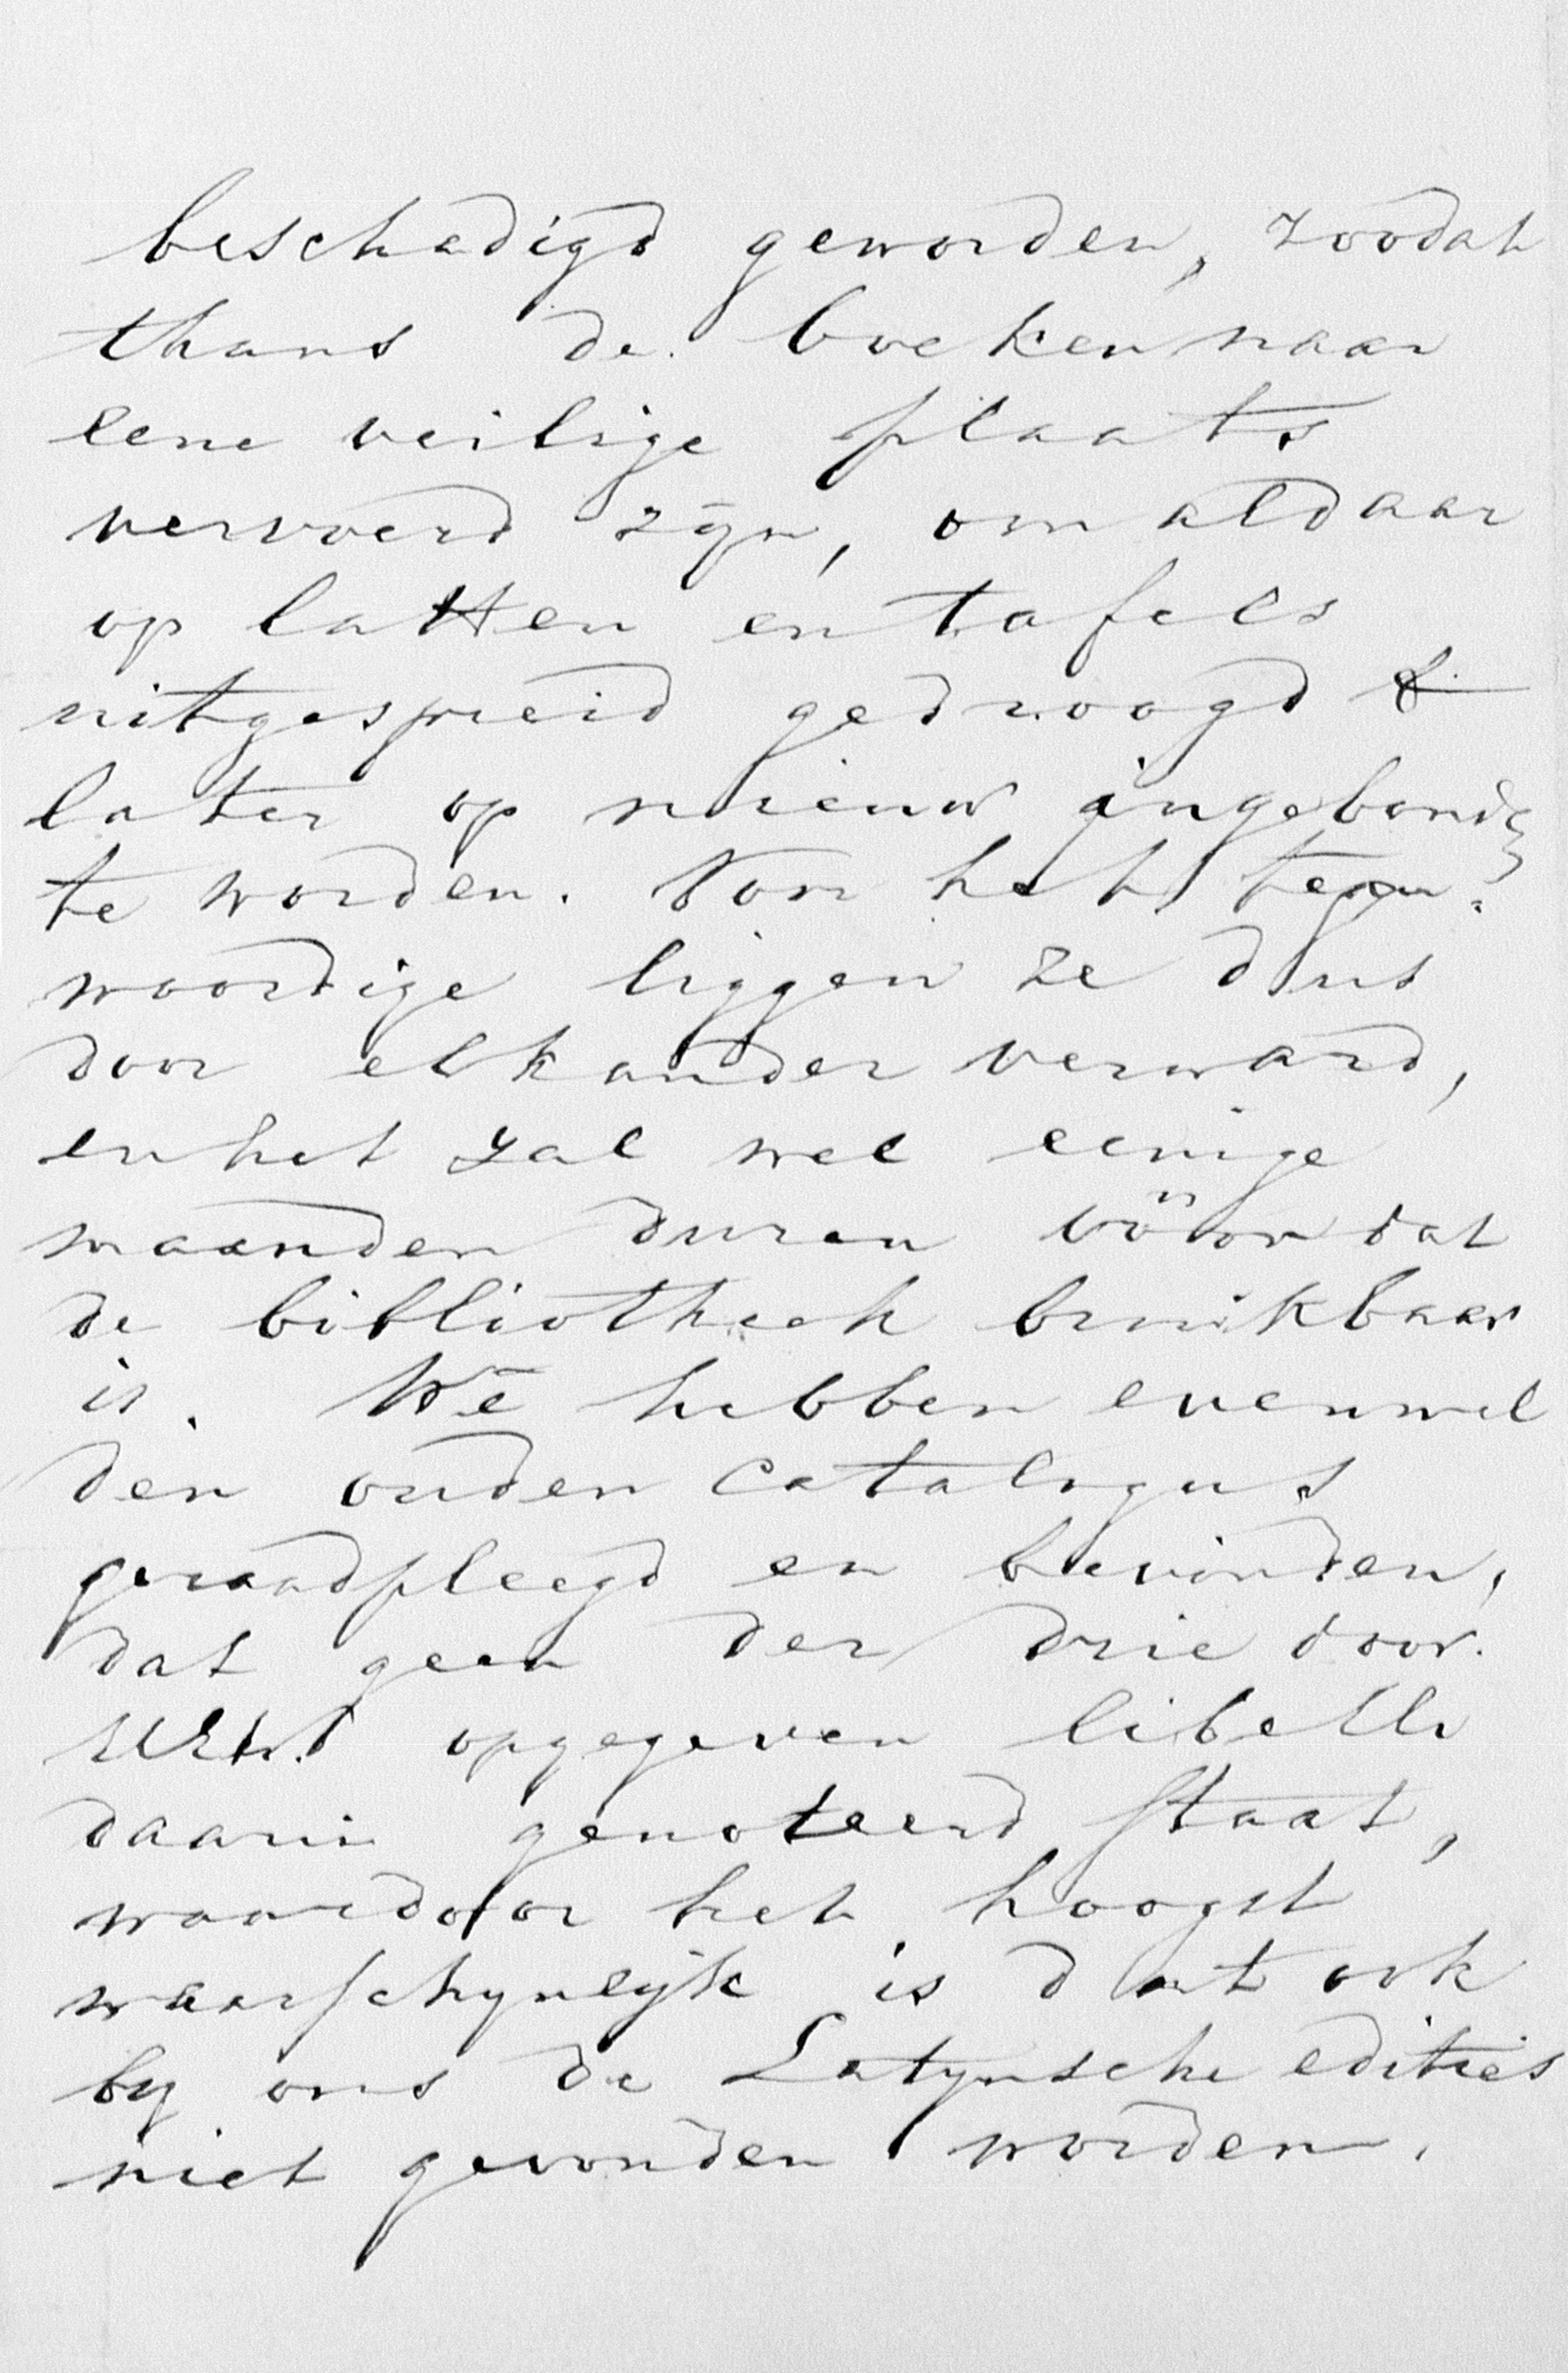 beschadigd geworden, zoodat
thans de boeken naar
eene veilige plaats
vervoerd zijn, om aldaar
op latten en tafels
uitgespreid gedroogd &
later op nieuw ingebonden
te worden. Voor het tegen-
woordige liggen ze dus
door elkander verward,
en het zal wel eenige
maanden duren vóór dat
de bibliotheek bruikbaar
is. We hebben evenwel
den ouden catalogus
geraadpleegd en bevonden,
dat geen der drie door
opgegeven libelli
daarin genoteerd staat,
waardoor het hoogst
waarschynlyk is dat ook
by ons de Latynsche edities
niet gevonden worden.